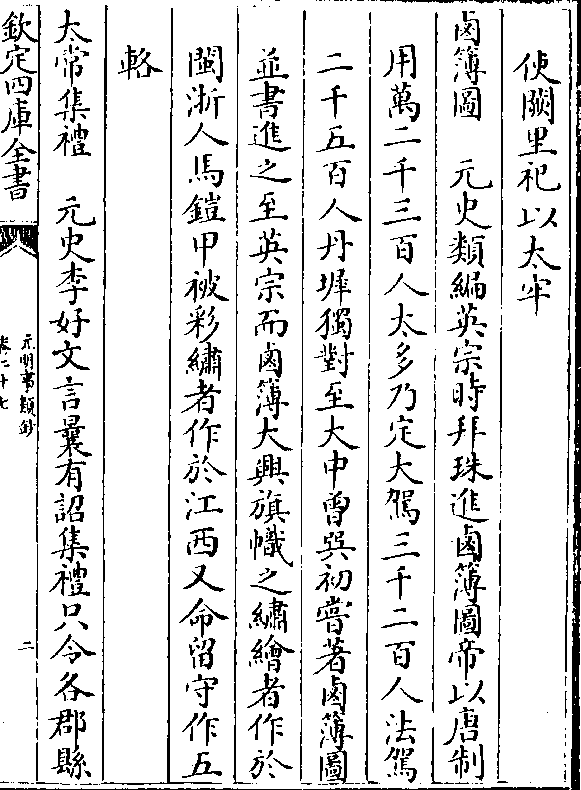 使闕里祀以太牢
鹵簿圖　元史類編英宗時拜珠進鹵簿圖帝以唐制
用萬二千三百人太多乃定大駕三千二百人法駕
二千五百人丹墀獨對至大中曾巽初嘗著鹵簿圖
並書進之至英宗而鹵簿大興旗幟之繡繪者作於
閩浙人馬鎧甲被彩繡者作於江西又命留守作五
輅
太常集禮　元史李好文言曩有詔集禮只令各郡縣
欽定四庫全書
元明事類鈔
卷二十七
二